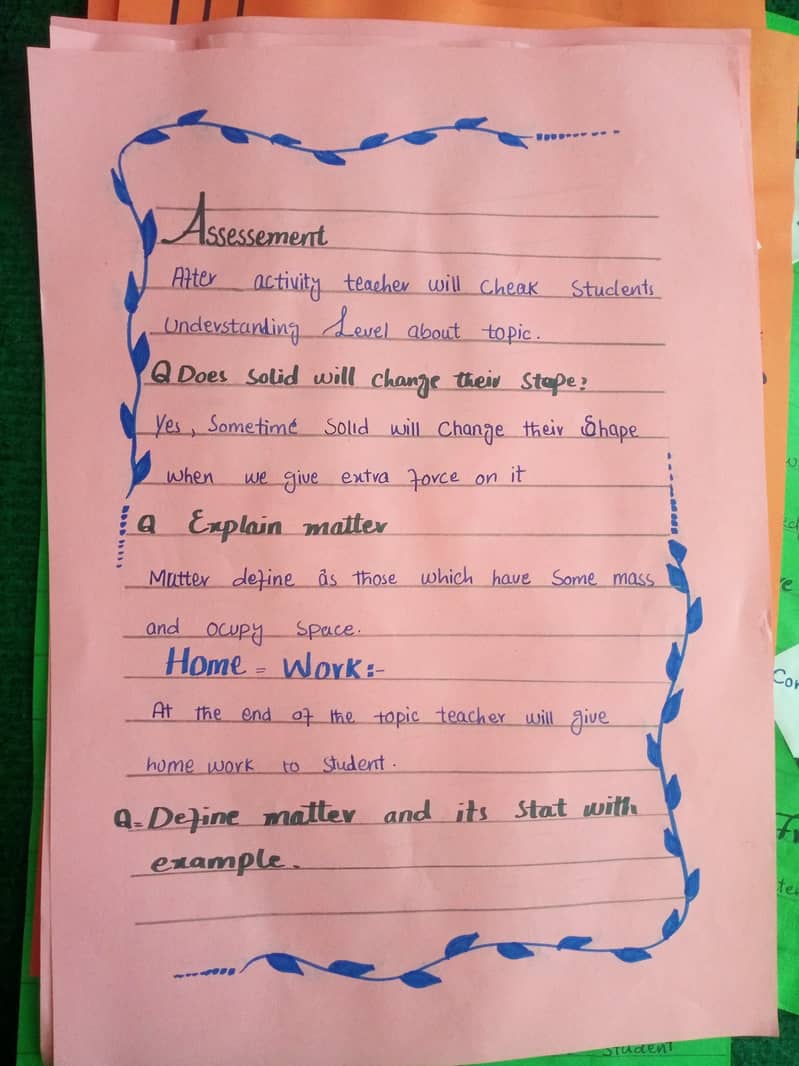 Assessement
After activity teacher will cheak students
Understanding Level about topic.
Q Does solid will change their stape?
Yes, Sometime Solid will Change their Shape
when we give extra force on it
Q Explain matter
Matter define as those which have Some mass
and ocupy space.
Home = Work:-
At the end of the topic teacher will give
home work to student.
Q = Define matter and its stat with
example.
student